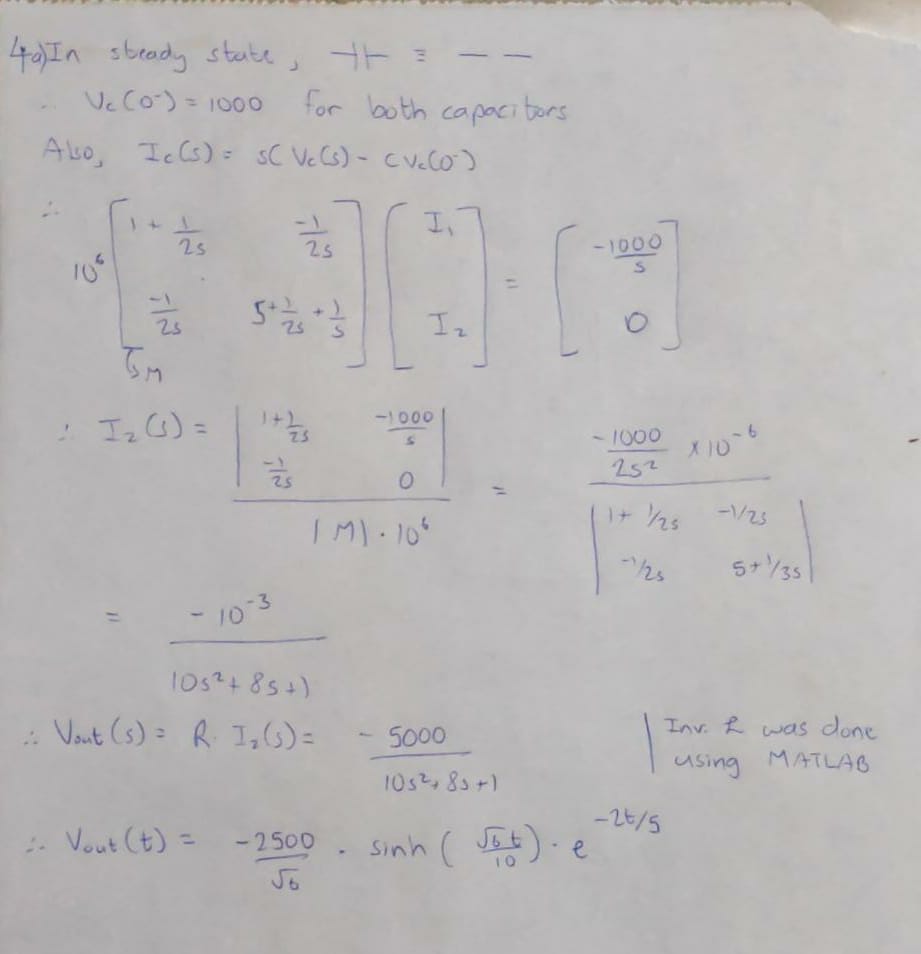 4a) In steady state, ⊣⊢ ≡ — —
∴ Vc(0⁻) = 1000 for both capacitors
Also, Ic(s) = sC Vc(s) - C Vc(0⁻)
∴ 10⁶ [ 1 + 1/2s   -1/2s ; -1/2s   5 + 1/2s + 1/s ] [ I₁ ; I₂ ] = [ -1000/s ; 0 ]
↳ M
∴ I₂(s) = | 1 + 1/2s   -1000/s ; -1/2s   0 | / |M| · 10⁶ = -1000/2s² × 10⁻⁶ / | 1 + 1/2s   -1/2s ; -1/2s   5 + 1/3s |
= -10⁻³ / 10s² + 8s + 1
∴ Vout(s) = R · I₂(s) = - 5000 / 10s² + 8s + 1
Inv. ℒ was done
using MATLAB
∴ Vout(t) = -2500/√6 · sinh(√6 t/10) · e^-2t/5